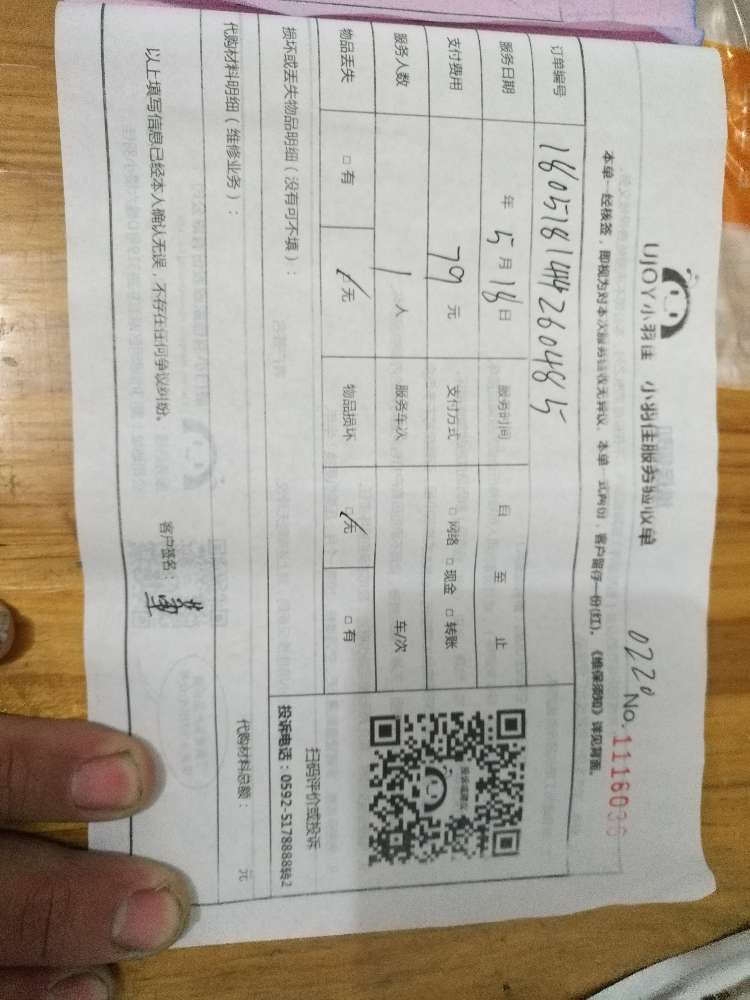 UJOY小羽佳 小羽佳服务验收单
0220
No. 1116036
本单一经核签，即视为对本次服务验收无异议，本单一式两份，客户留存一份(红)。《维保须知》详见背面。
订单编号 180518144260485
服务日期 年 5 月 18 日 服务时间 自 至 止
支付费用 79 元 支付方式 □ 网络 □ 现金 □ 转账
服务人数 1 人 服务车次 车/次
物品丢失 □ 有 ☑ 无 物品损坏 ☑ 无 □ 有
损坏或丢失物品明细（没有可不填）：
扫码评价或投诉
投诉电话：0592-5178888转2
代购材料明细（维修业务）： 代购材料总额： 元
以上填写信息已经本人确认无误，不存在任何争议纠纷。
客户签名：